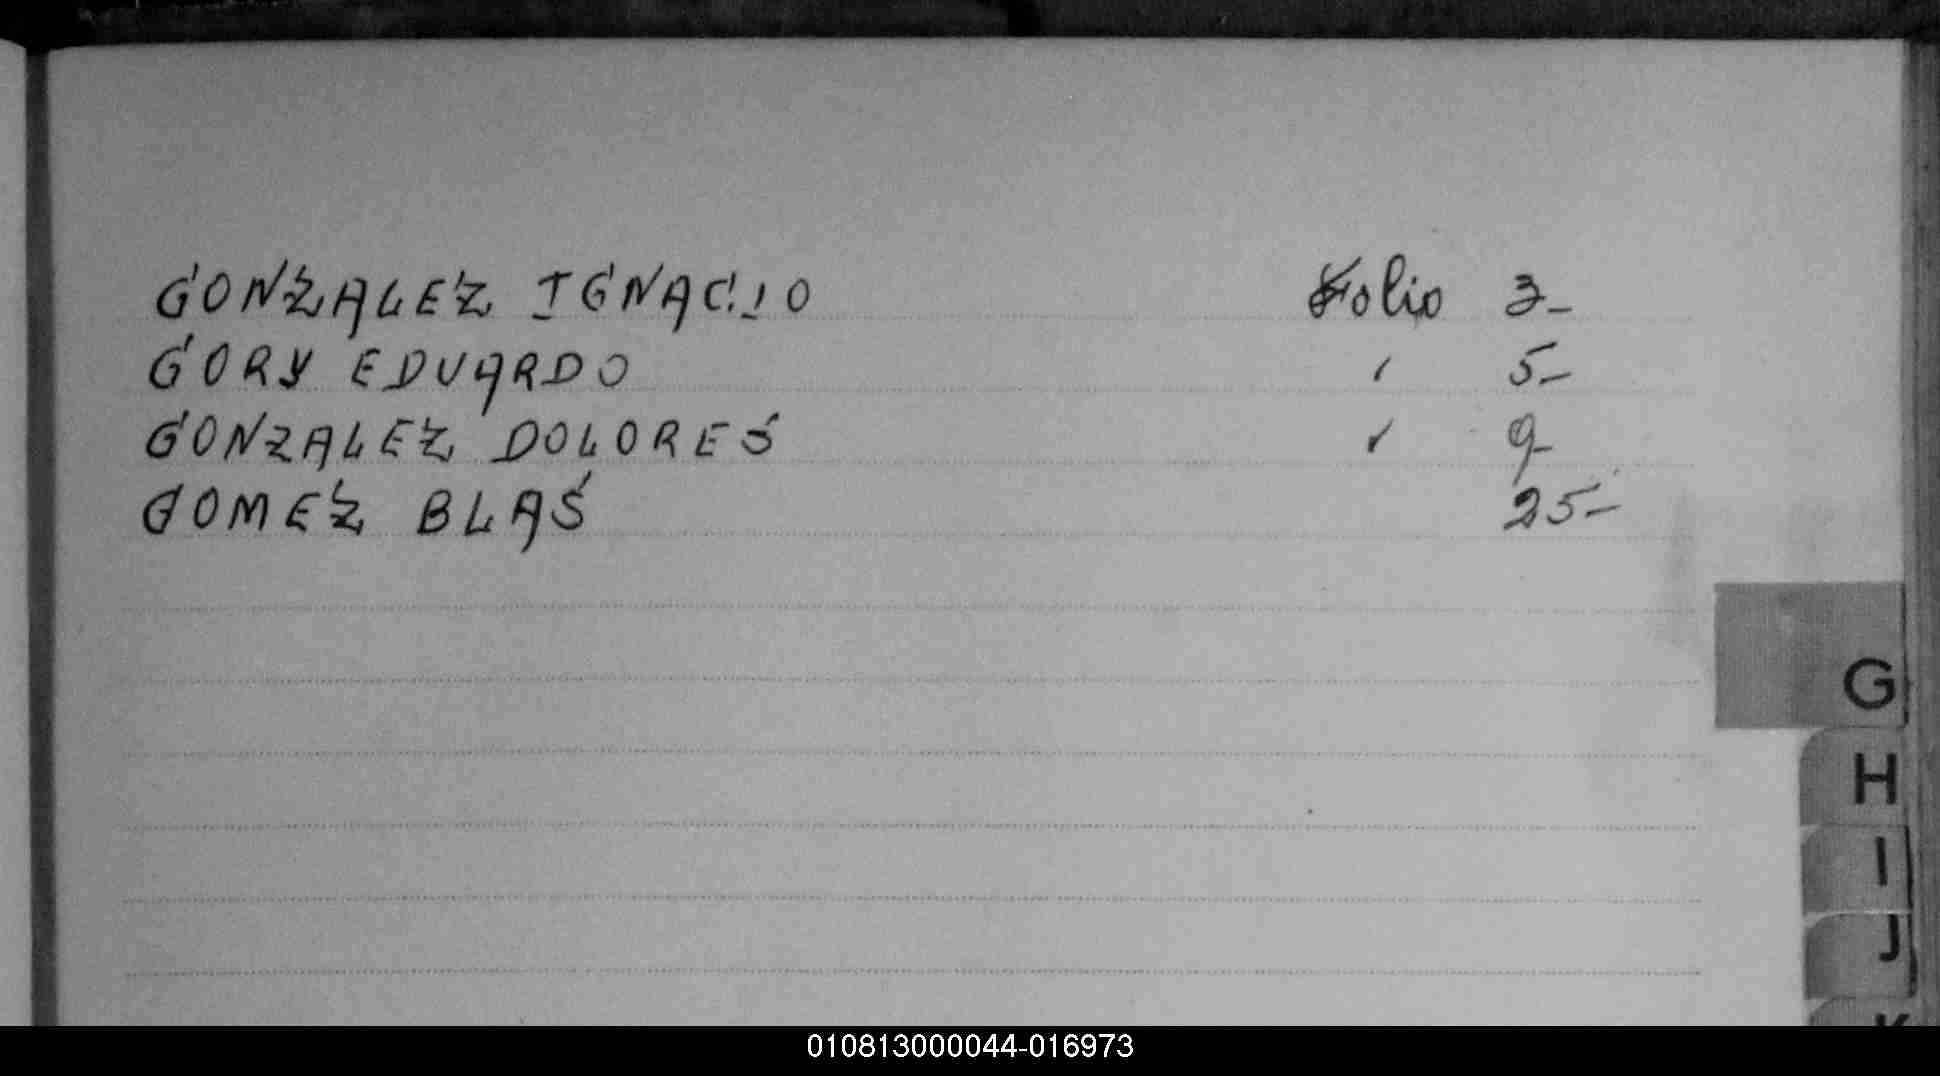 GONZALEZ IGNACIO Folio 3-
GORY EDUARDO ′ 5-
GONZALEZ DOLORES ′ 9-
GOMEZ BLAS 25-
G
H
I
J
K
010813000044-016973